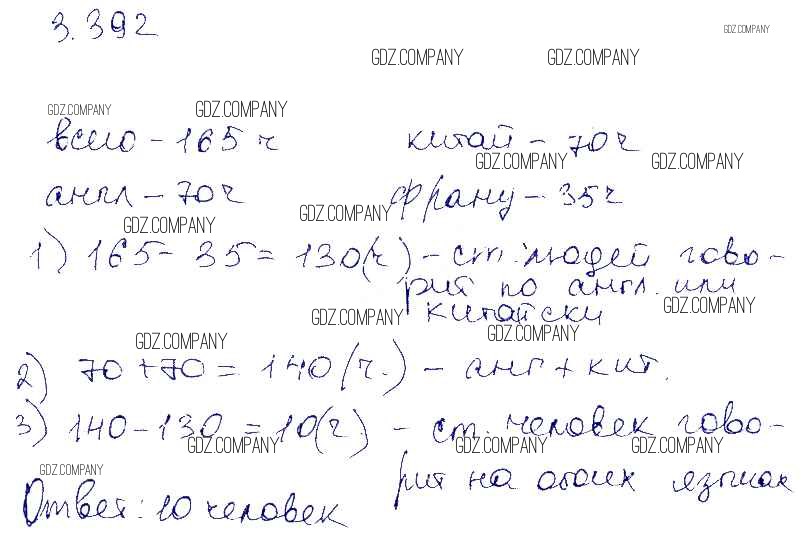 3.392
GDZ.COMPANY
GDZ.COMPANY GDZ.COMPANY
GDZ.COMPANY GDZ.COMPANY
всего - 165 ч китай - 70 ч
GDZ.COMPANY GDZ.COMPANY
англ - 70 ч франц - 35 ч
GDZ.COMPANY GDZ.COMPANY
1) 165 - 35 = 130(ч) - ст. людей гово-
рит по англ. или
китайски
GDZ.COMPANY GDZ.COMPANY
GDZ.COMPANY GDZ.COMPANY
2) 70 + 70 = 140 (ч.) - анг + кит.
3) 140 - 130 = 10(ч.) - ст. человек гово-
GDZ.COMPANY GDZ.COMPANY GDZ.COMPANY
рит на обоих языках
GDZ.COMPANY
Ответ: 10 человек